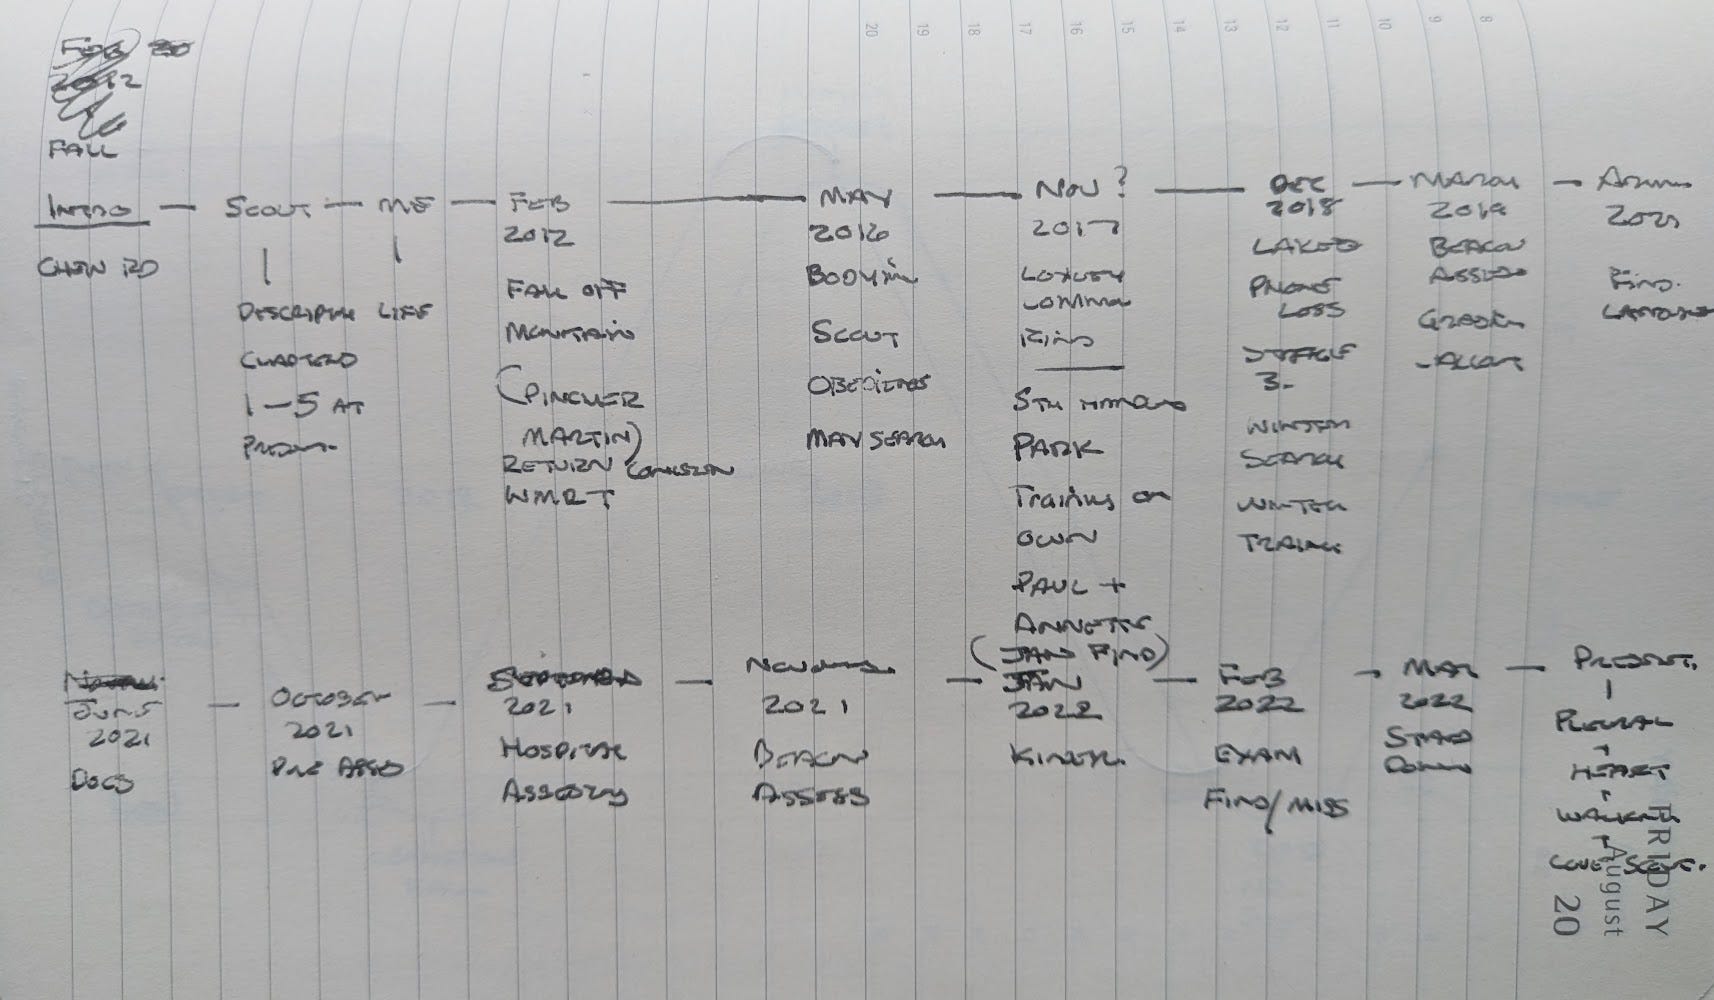 20 19 18 17 16 15 14 13 12 11 10 9 8
FEB
2012
FALL
INTRO — SCOUT — ME — FEB — MAY — NOV? — DEC — MARCH —
2012
2016
2017
2018
2019
2021
CHEW RD
|
DESCRIPTION
CHAPTERS
1-5 AT
PRESENT
|
LIFE
FALL OFF
MOUNTAIN
(PINCHER
MARTIN)
RETURN
WMRT
SCOUT
MAY SEARCH
LOXLEY
COMMON
FIND
PARK
Training on
OWN
PAUL +
ANNETTE
(JAN FIND)
LAKES
PHONE
LOSS
3-
WINTER
SEARCH
WINTER
TRAINING
BEACON
ASSESS
FIND.
JUNE
2021
DOCS
— OCTOBER
2021
PRE ASSESS
— SEPTEMBER
2021
HOSPITAL
— November
2021
BEACON
ASSESS
— JAN
2022
KINDER.
— FEB
2022
EXAM
FIND/MISS
— MAR
2022
STAND
DOWN
— PRESENT.
|
PLEURAL
HEART
WALKING
LOVE SCOUT.
FRIDAY
August
20